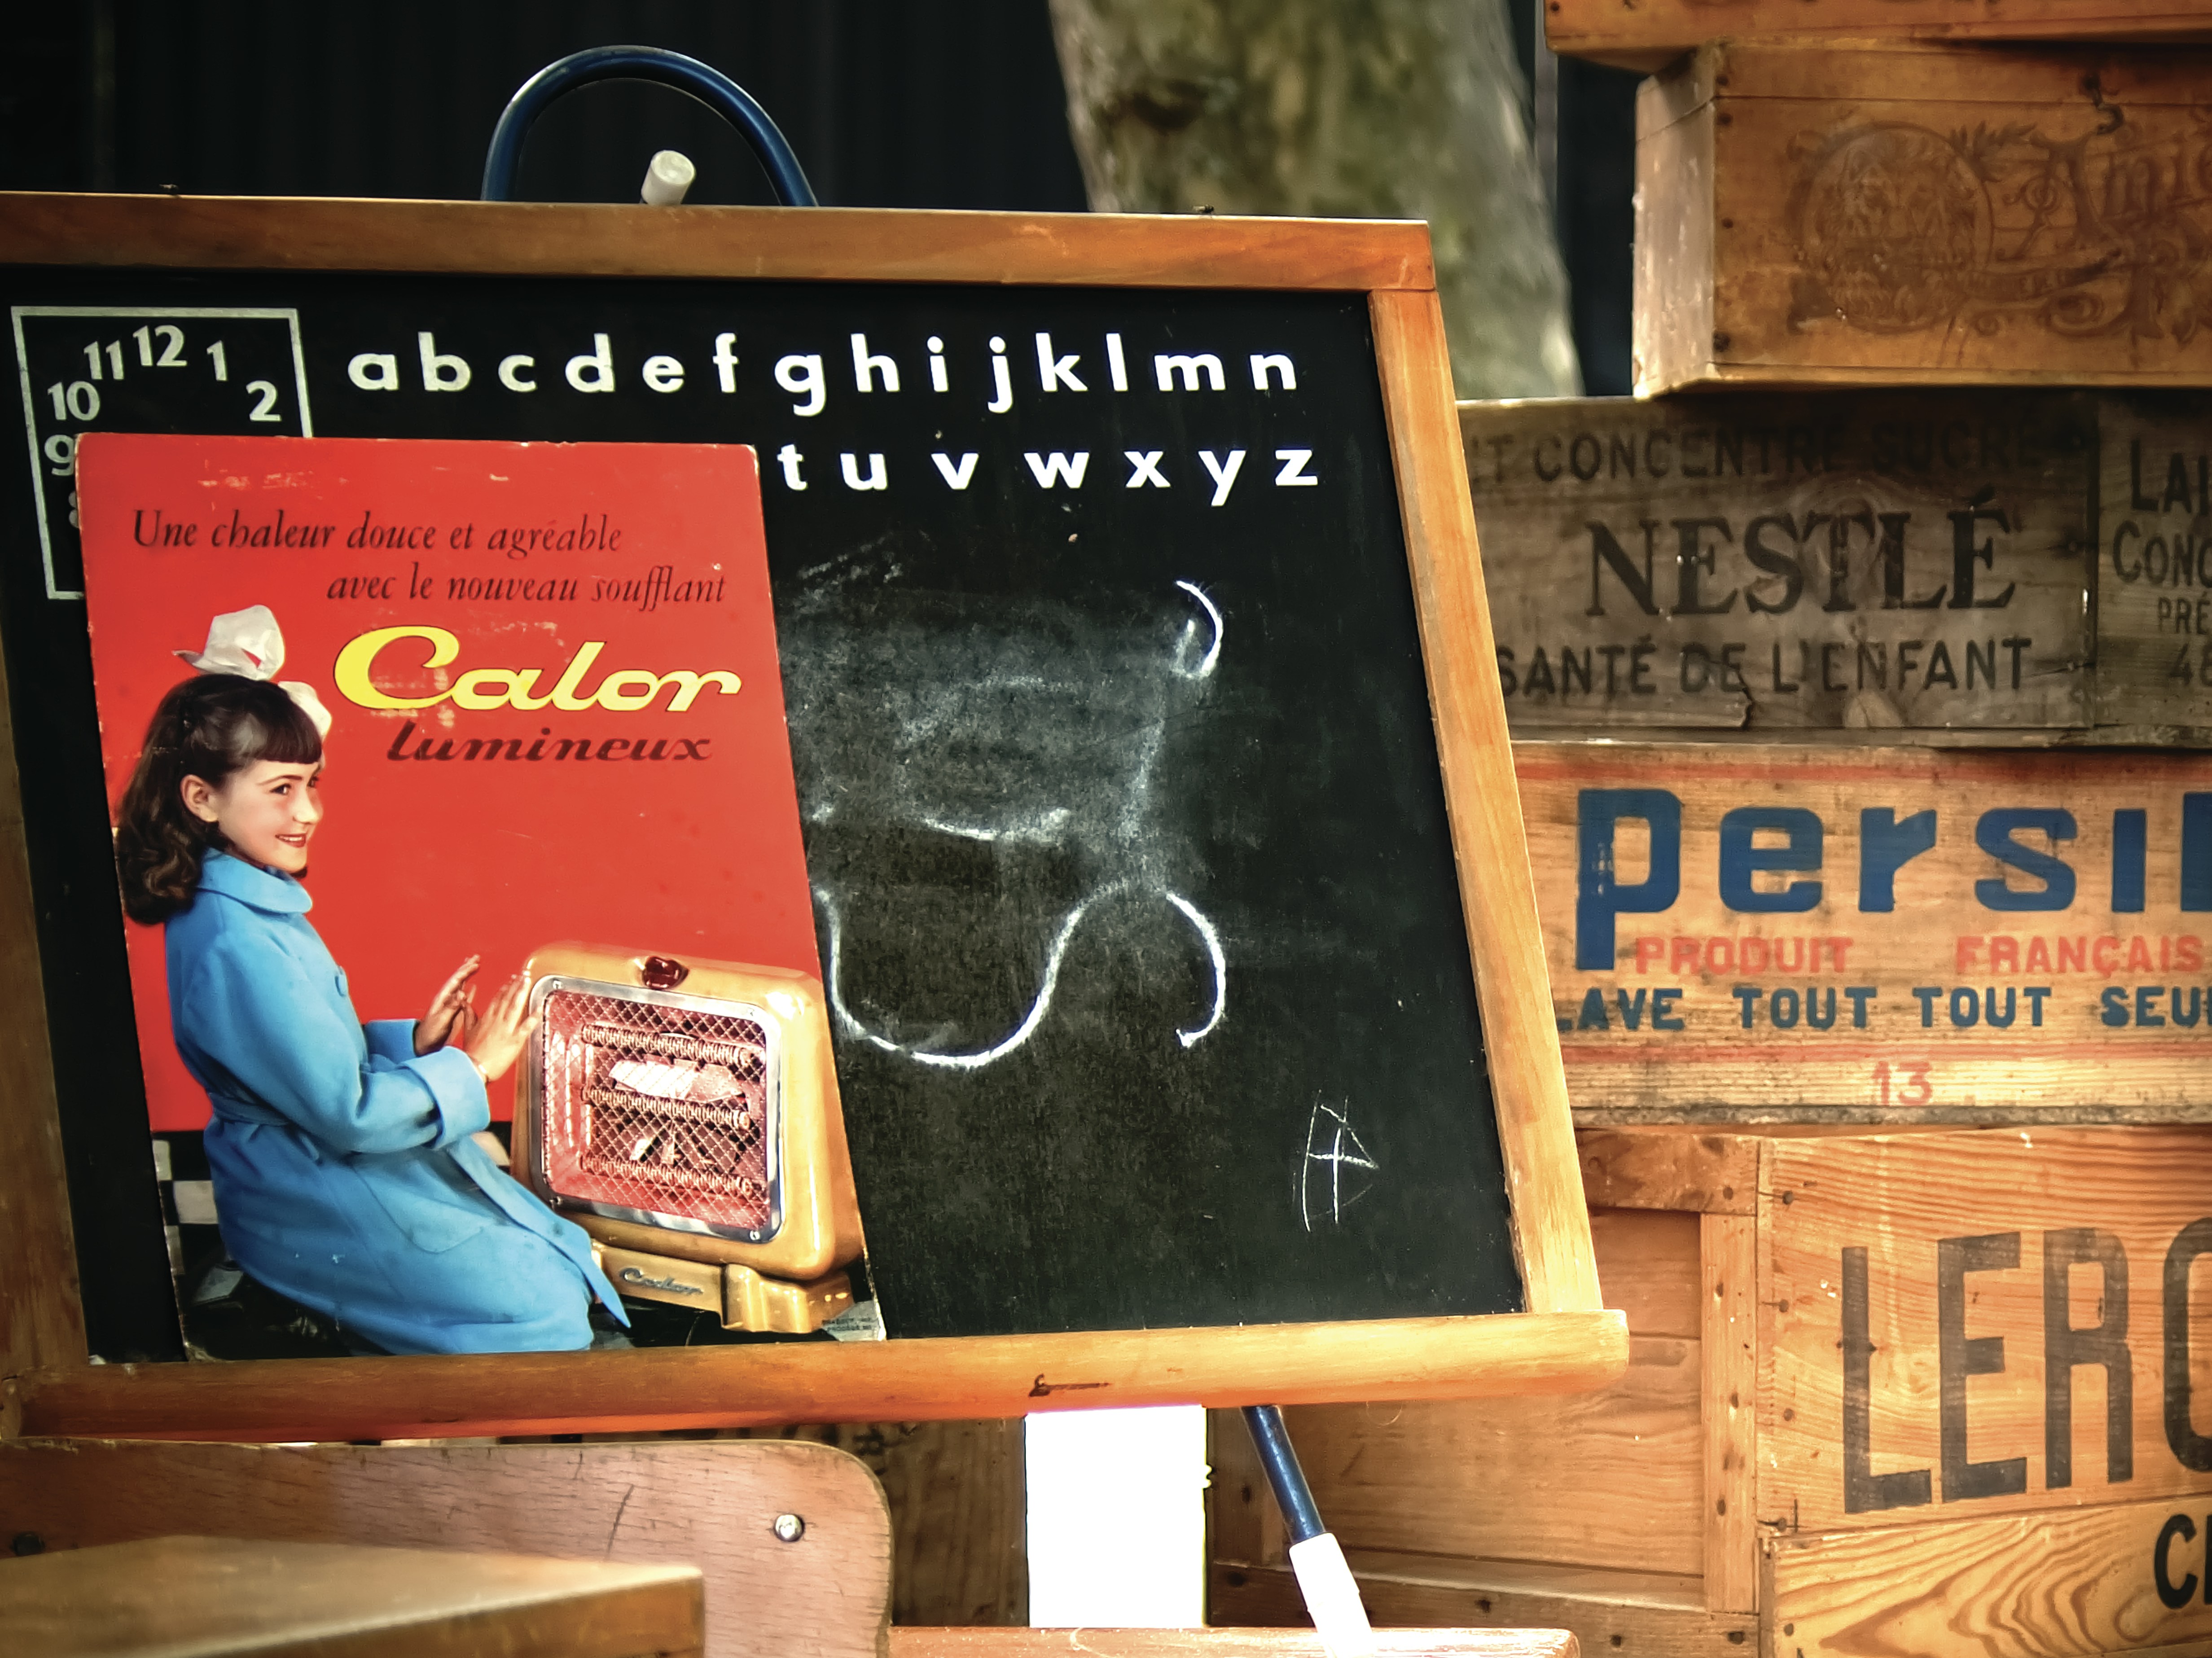 11 12 1
10 2
9
a b c d e f g h i j k l m n
t u v w x y z
Une chaleur douce et agréable
avec le nouveau soufflant
Calor
lumineux
Calor
CONCENTRÉ SUCRÉ
NESTLÉ
SANTÉ DE L'ENFANT
persil
PRODUIT FRANÇAIS
LAVE TOUT TOUT SEUL
13